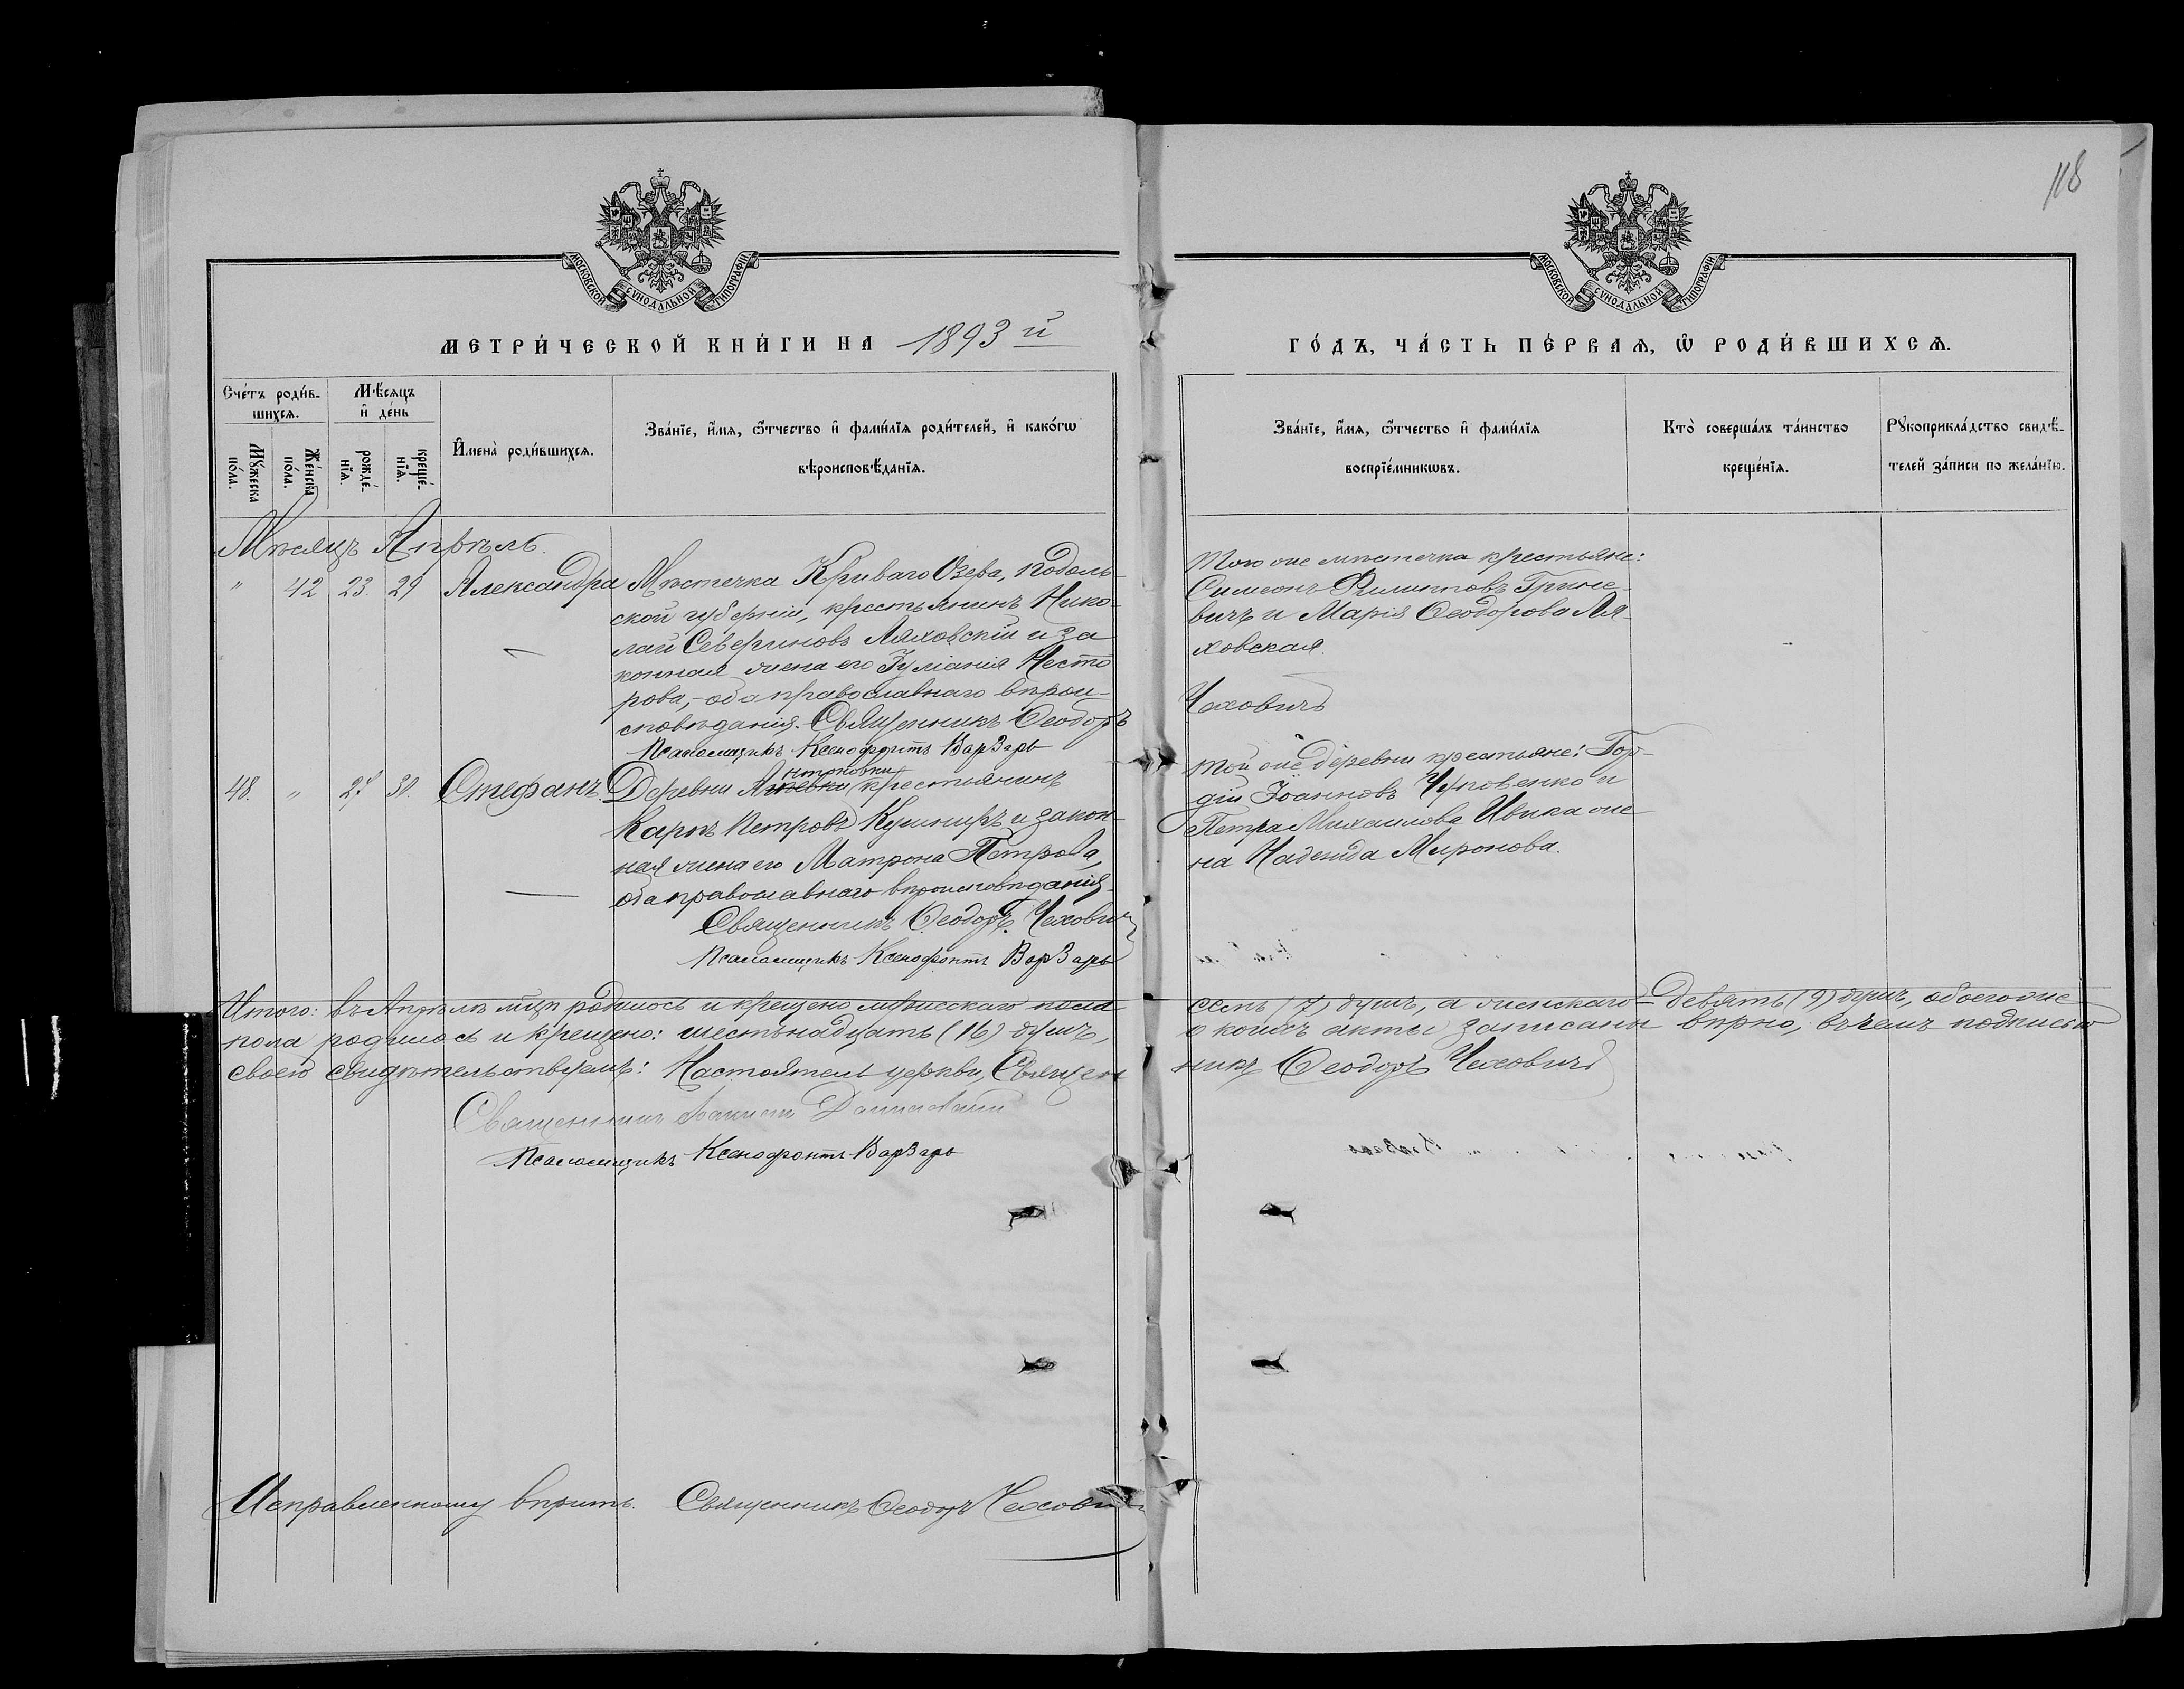 118
МОСКОВСКОЙ СѴНОДАЛЬНОЙ ТИПОГРАФІИ
МОСКОВСКОЙ СѴНОДАЛЬНОЙ ТИПОГРАФІИ
МЕТРИ́ЧЕСКОЙ КНИ́ГИ НА 1893 й
ГО́ДЪ, ЧА́СТЬ ПЕ́РВАѦ, Ѡ РОДИ́ВШИХСѦ.
Сче́тъ роди́в-
шихсѧ.
Мꙋ́жеска по́ла.
Же́нска по́ла.
Мѣ́сѧцъ
и҆ де́нь
рожде́-
нїѧ.
креще́-
нїѧ.
И҆мена̀ роди́вшихсѧ.
Зва́нїе, и҆́мѧ, ѻ҆́тчество и҆ фами́лїѧ роди́телей, и҆ како́гѡ
вѣроисповѣ́данїѧ.
Зва́нїе, и҆́мѧ, ѻ҆́тчество и҆ фами́лїѧ
воспрїе́мникѡвъ.
Кто̀ соверша́лъ та́инство
креще́нїѧ.
Рꙋкоприкла́дство свидѣ́-
телей за́писи по жела́нїю.
Мѣсяцъ Апрѣль.
" 42 23. 29 Александра Мѣстечка Криваго Озера, Подоль-
ской губерніи, крестьянинъ Нико-
лай Севериновъ Ляховскій и за
конная жена его Іуліанія Несто
рова,- оба православнаго вѣрои-
сповѣданія. Священникъ Ѳеодоръ
Псаломщикъ Ксенофонтъ ВарЗаръ
Того же мѣстечка крестьяне:
Симеонъ Филиповъ Грине-
вичъ и Марія Ѳеодорова Ля-
ховская.
Чеховичъ
48. " 27 30. Стефанъ. Деревни крестьянинъ
Карпъ Петровъ Кушниръ и закон-
ная жена его Матрона Петрова,
оба православнаго вѣроисповѣданія.
Священникъ Ѳеодоръ Чеховичъ
Псаломщикъ Ксенофонтъ ВарЗаръ
Той же деревни крестьяне: Гор-
дій Іоанновъ и
Петра Михаилова Ивика же
на Надежда Миронова.
Итого: въ Апрѣлѣ мцѣ родилось и крещено мужескаго пола
семь (7) душъ, а женскаго - девять (9) душъ, обоего же
пола родилось и крещено: шестьнадцать (16) душъ,
о коихъ акты записаны вѣрно, въ чемъ подписью
своею свидѣтельствуемъ: Настоятель церкви, Священ
никъ Ѳеодоръ Чеховичъ
Священникъ
Псаломщикъ Ксенофонтъ ВарЗаръ
Исправленному вѣрить. Священникъ Ѳеодоръ Чеховичъ